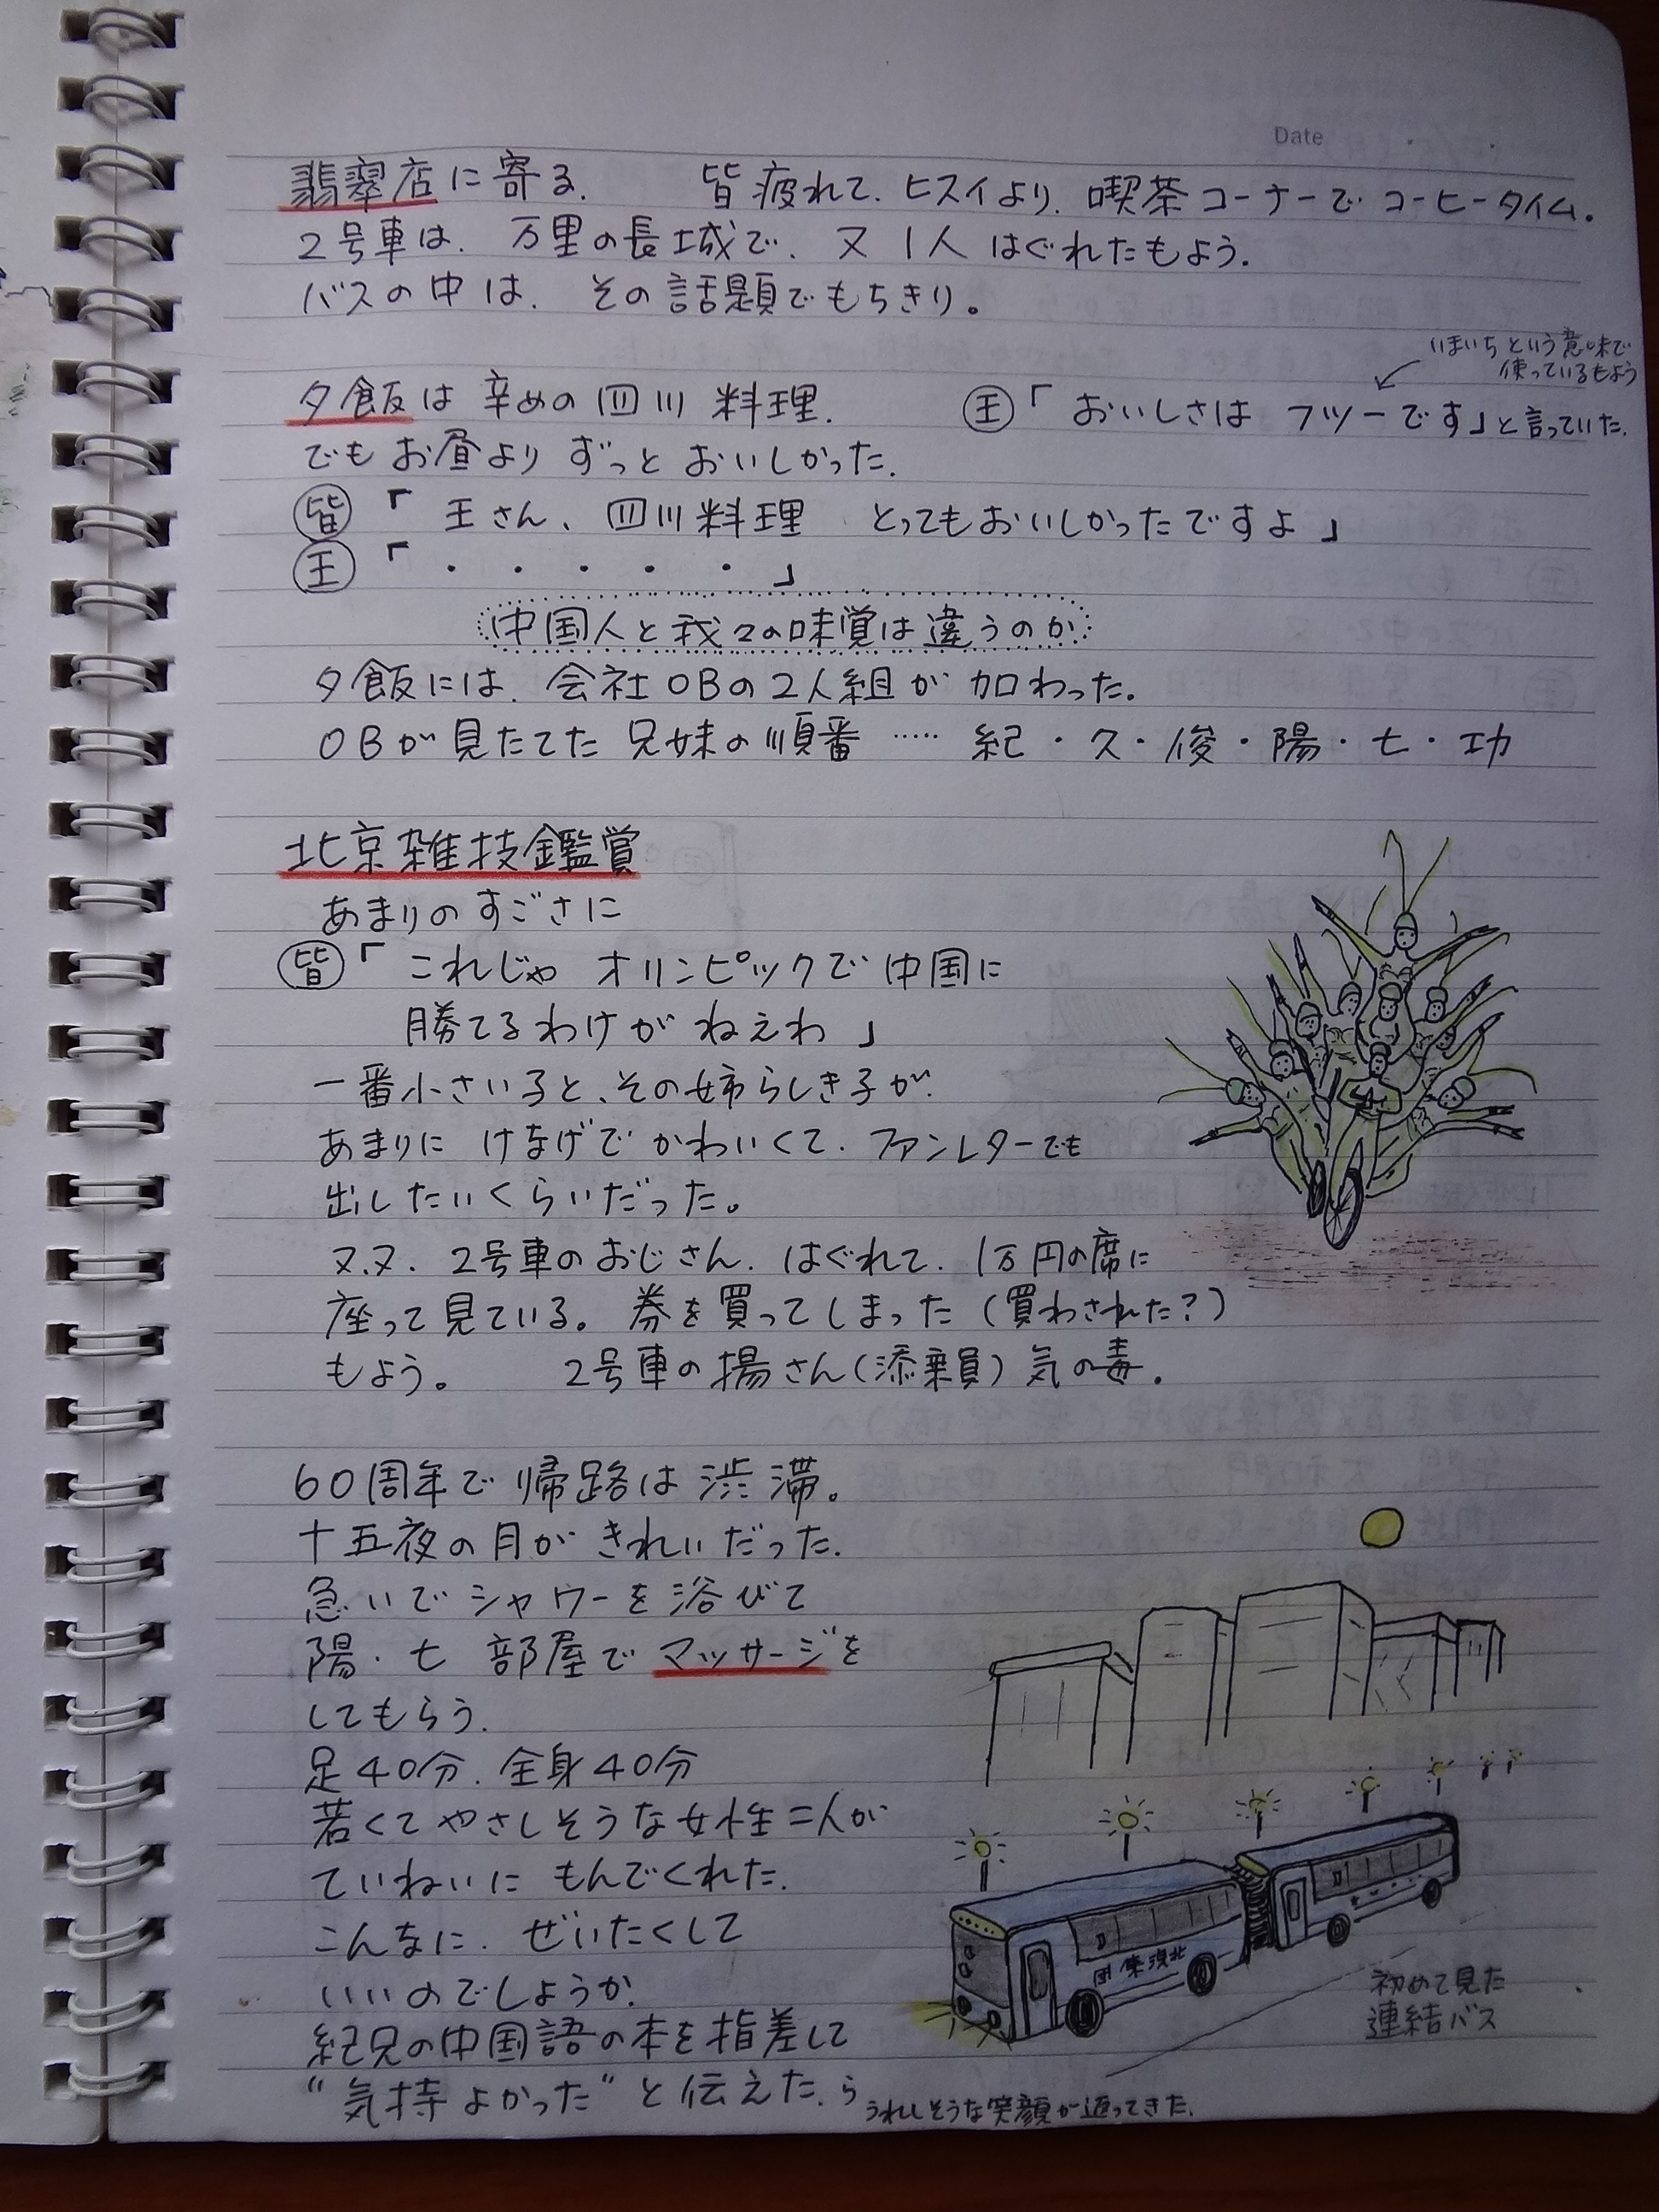 Date
翡翠店に寄る. 皆疲れて. ヒスイより. 喫茶コーナーで コーヒータイム。
2号車は. 万里の長城で. 又1人 はぐれたもよう.
バスの中は. その話題でもちきり。
いまいち という意味で
使っているもよう
夕飯は 辛めの 四川 料理. 王「 おいしさは フツーです」と言っていた.
でもお昼より ずっと おいしかった.
皆「 王さん、四川料理 とってもおいしかったですよ 」
王「 ・ ・ ・ ・ ・ 」
中国人と我々の味覚は違うのか
夕飯には. 会社OBの2人組が 加わった.
OBが見たてた 兄妹の順番 ‥‥‥ 紀・久・俊・陽・七・功
北京雑技鑑賞
あまりのすごさに
皆「 これじゃ オリンピックで 中国に
勝てるわけが ねえわ 」
一番小さい子と、その姉らしき子が.
あまりに けなげで かわいくて. ファンレターでも
出したいくらいだった。
又.又. 2号車のおじさん. はぐれて. 1万円の席に
座って見ている。券を買ってしまった(買わされた?)
もよう。 2号車の揚さん(添乗員)気の毒.
60周年で 帰路は 渋滞。
十五夜の月が きれいだった.
急いでシャワーを浴びて
陽・七 部屋で マッサージを
してもらう.
足40分. 全身40分
若くてやさしそうな女性二人が
ていねいに もんでくれた.
こんなに. ぜいたくして
いいのでしょうか.
紀兄の中国語の本を指差して
“気持よかった” と伝えた.ら うれしそうな笑顔が返ってきた.
初めて見た
連結バス